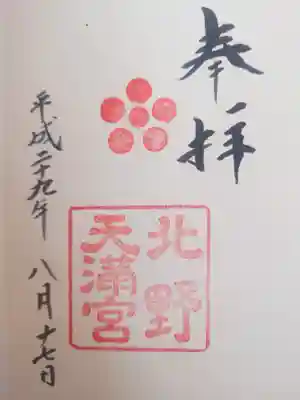 奉拝
北野
天満宮
平成二十九年八月十七日